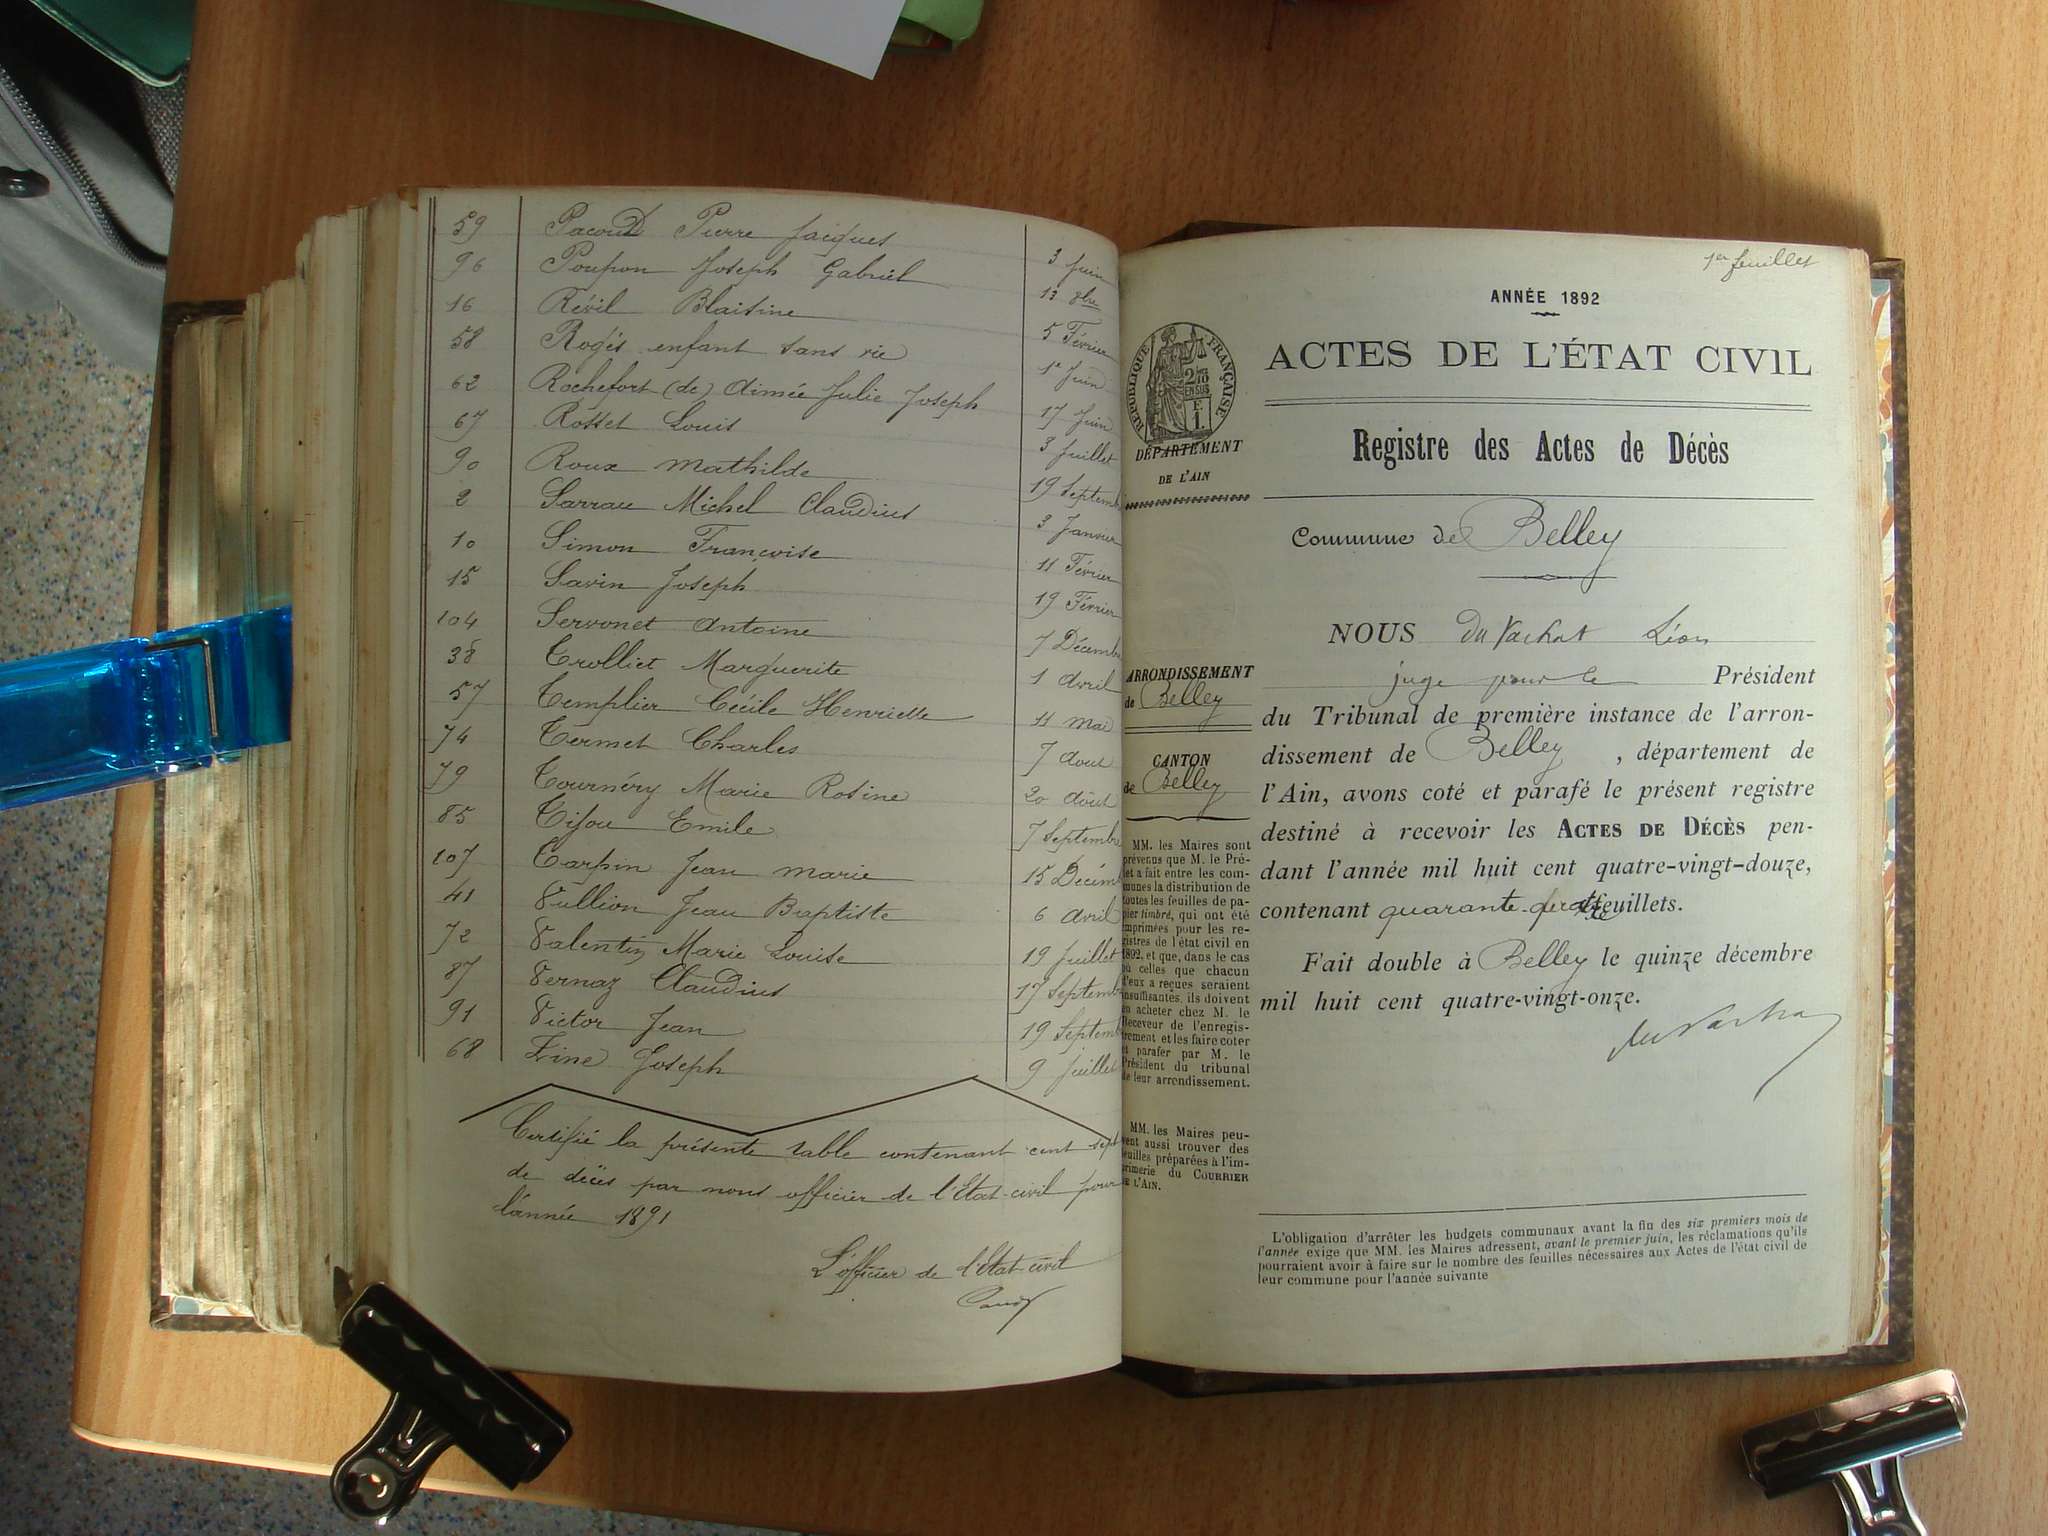 59 Pacoud Pierre Jacques 3 Juin
96 Poupon Joseph Gabriel 13 8bre
16 Révil Blaisine 5 Février
58 Rogés enfant sans vie 1er Juin
62 Rochefort (de) Aimée Julie Joseph 17 Juin
67 Rosset Louis 3 Juillet
90 Roux Mathilde 19 Septemb
2 Sarrau Michel Claudius 3 Janvier
10 Simon Françoise 11 Février
15 Savin Joseph 19 Février
104 Servonet Antoine 7 Décemb
38 Trolliet Marguerite 1 Avril
57 Templier Cécile Henriette 11 Mai
74 Termet Charles 7 Aout
79 Tournéry Marie Rosine 20 Août
85 Tisou Emile 7 Septembre
107 Tarpin Jean Marie 15 Décemb
41 Vullion Jean Baptiste 6 Avril
72 Valentin Marie Louise 19 Juillet
87 Vernaz Claudius 17 Septemb
91 Victor Jean 19 Septemb
68 Zine Joseph 9 Juillet
Certifié la présente table contenant cent sept
de décès par nous officier de l'Etat-civil pour
l'année 1891
L'officier de l'état-civil
1er feuillet
ANNÉE 1892
ACTES DE L'ÉTAT CIVIL
RÉPUBLIQUE FRANÇAISE
2/10 EN SUS
F. 1.
DÉPARTEMENT
DE L'AIN
Registre des Actes de Décès
Commune de Belley
ARRONDISSEMENT
de Belley
CANTON
de Belley
MM. les Maires sont
prévenus que M. le Pré-
fet a fait entre les com-
munes la distribution de
toutes les feuilles de pa-
pier timbré, qui ont été
imprimées pour les re-
gistres de l'état civil en
1892, et que, dans le cas
où celles que chacun
d'eux a reçues seraient
insuffisantes, ils doivent
en acheter chez M. le
Receveur de l'enregis-
trement et les faire coter
et parafer par M. le
Président du tribunal
de leur arrondissement.
MM. les Maires peu-
vent aussi trouver des
feuilles préparées à l'im-
primerie du COURRIER
DE L'AIN.
NOUS du Vachat Léon
juge pour le Président
du Tribunal de première instance de l'arron-
dissement de Belley , département de
l'Ain, avons coté et parafé le présent registre
destiné à recevoir les ACTES DE DÉCÈS pen-
dant l'année mil huit cent quatre-vingt-douze,
contenant quarante-quatre feuillets.
Fait double à Belley le quinze décembre
mil huit cent quatre-vingt-onze.
du Vachat
L'obligation d'arrêter les budgets communaux avant la fin des six premiers mois de
l'année exige que MM. les Maires adressent, avant le premier juin, les réclamations qu'ils
pourraient avoir à faire sur le nombre des feuilles nécessaires aux Actes de l'état civil de
leur commune pour l'année suivante